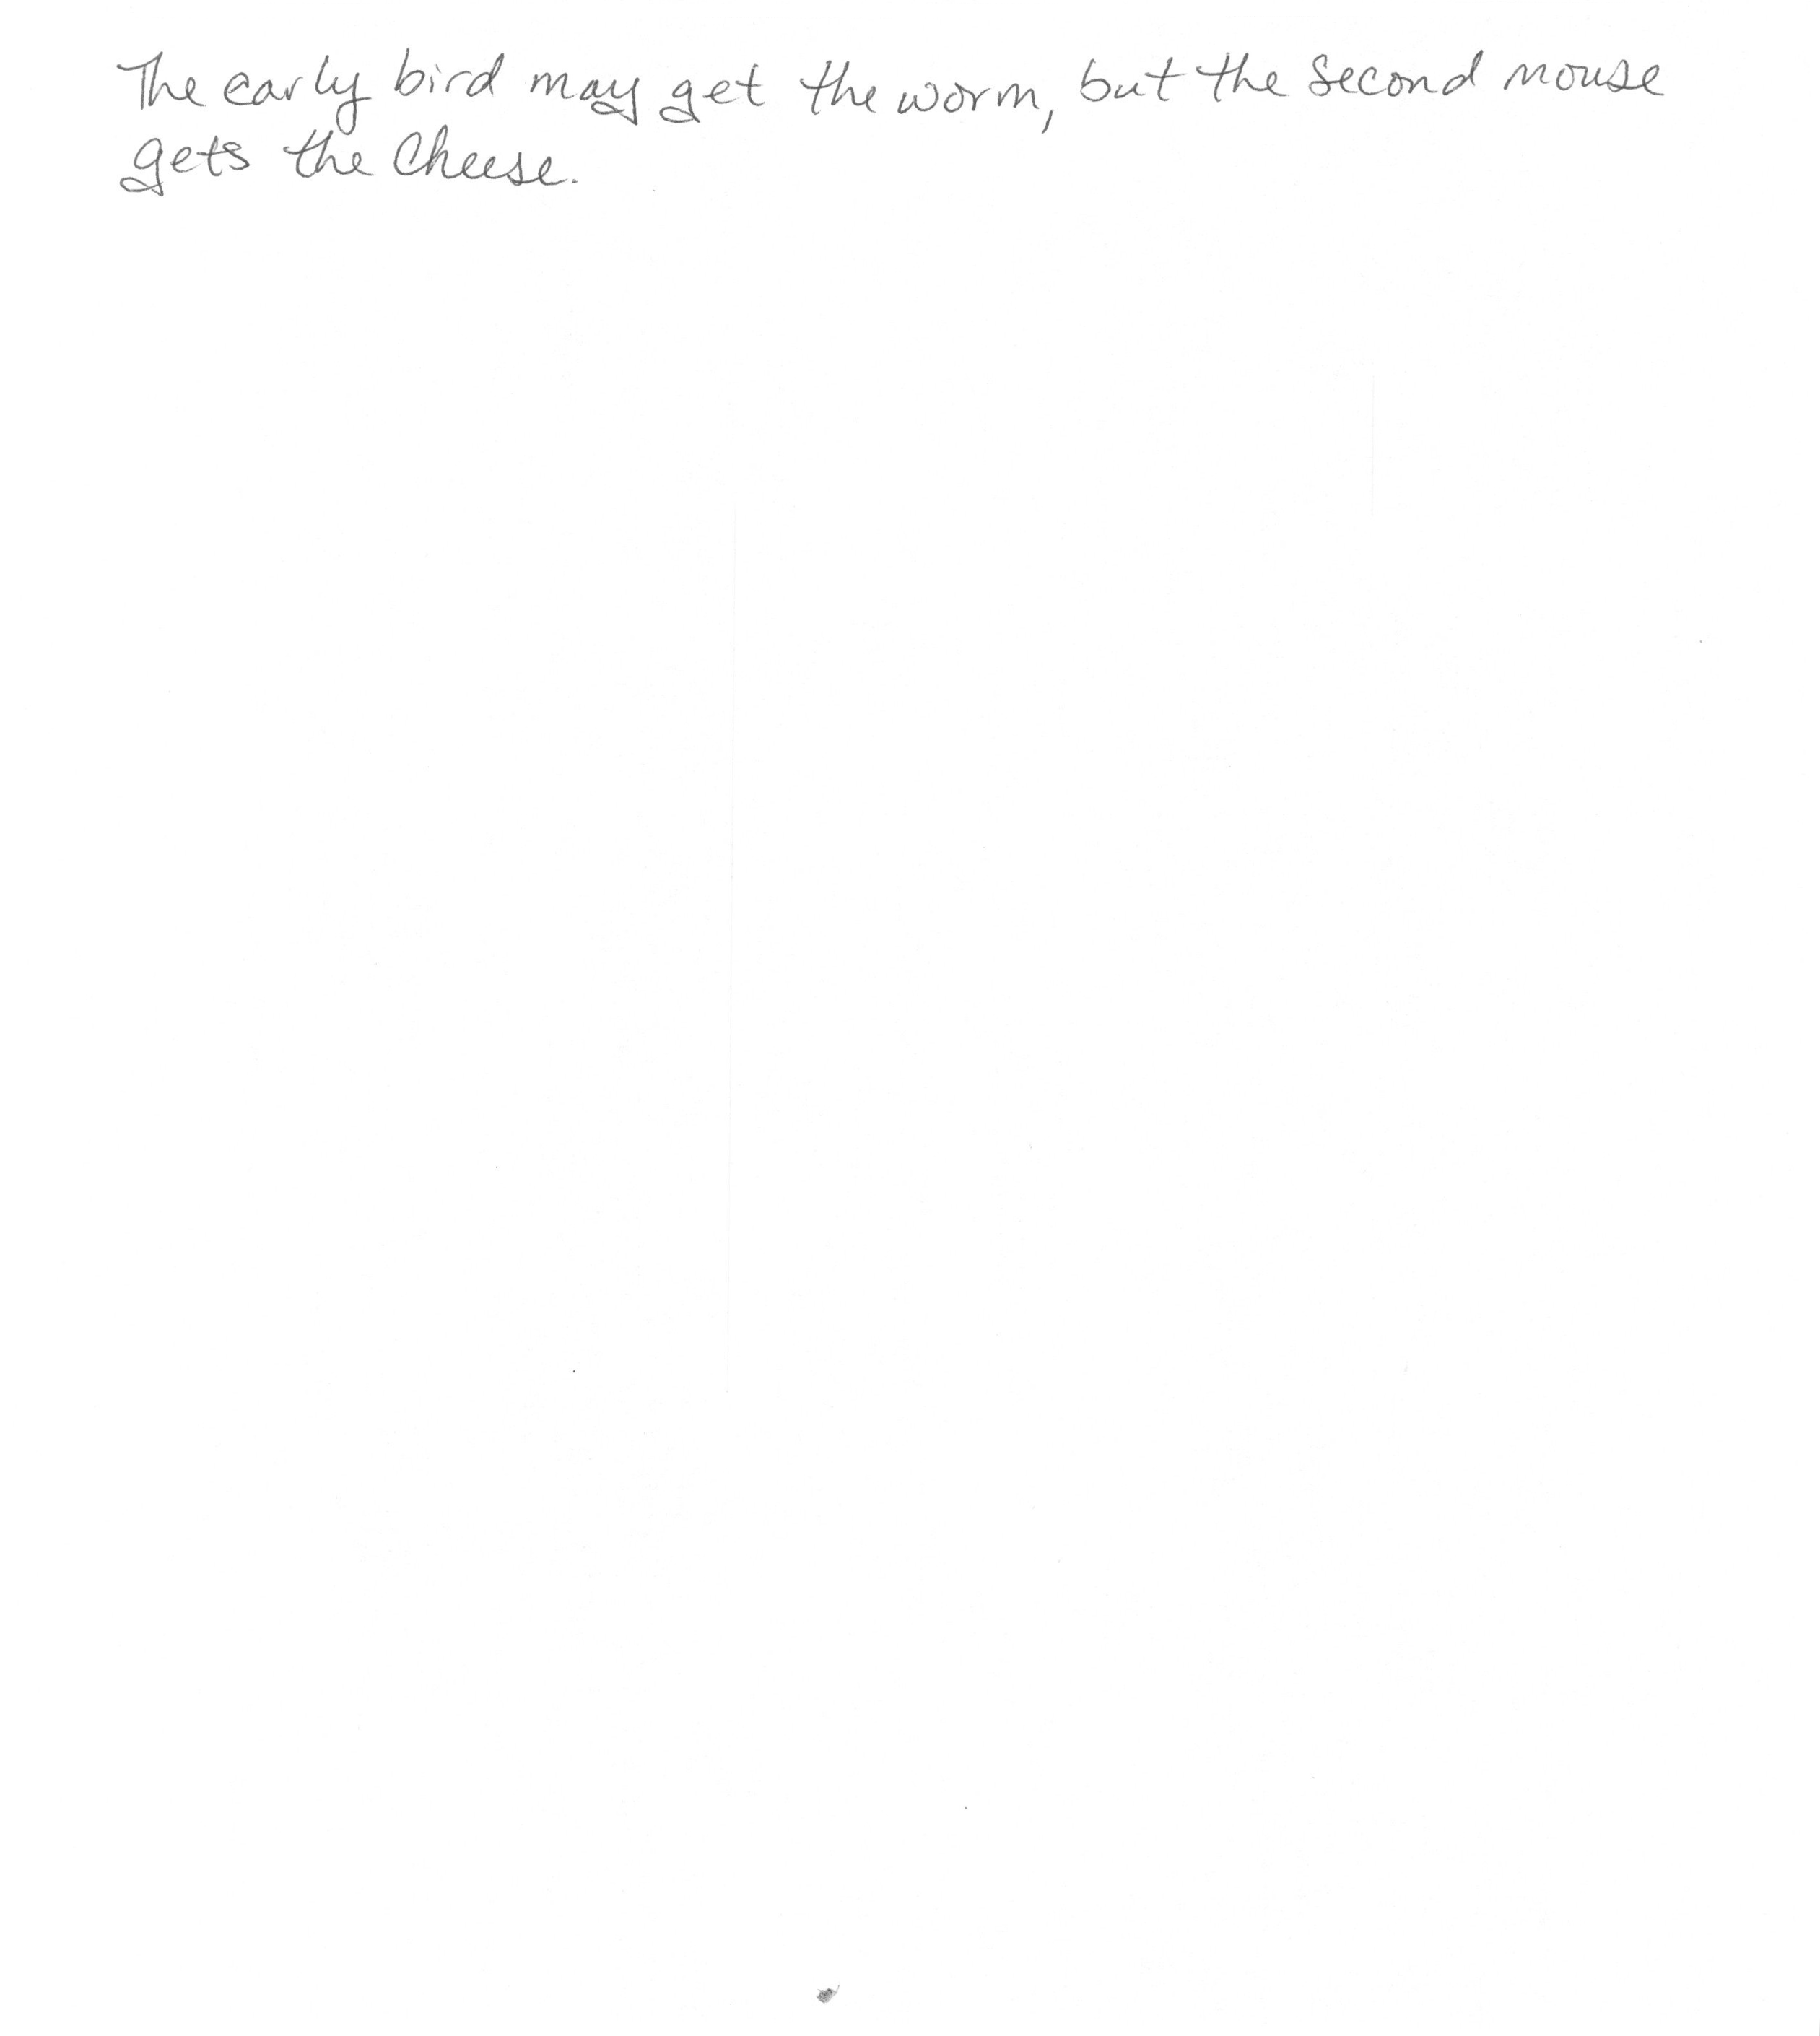 The early bird may get the worm, but the second mouse
gets the Cheese.